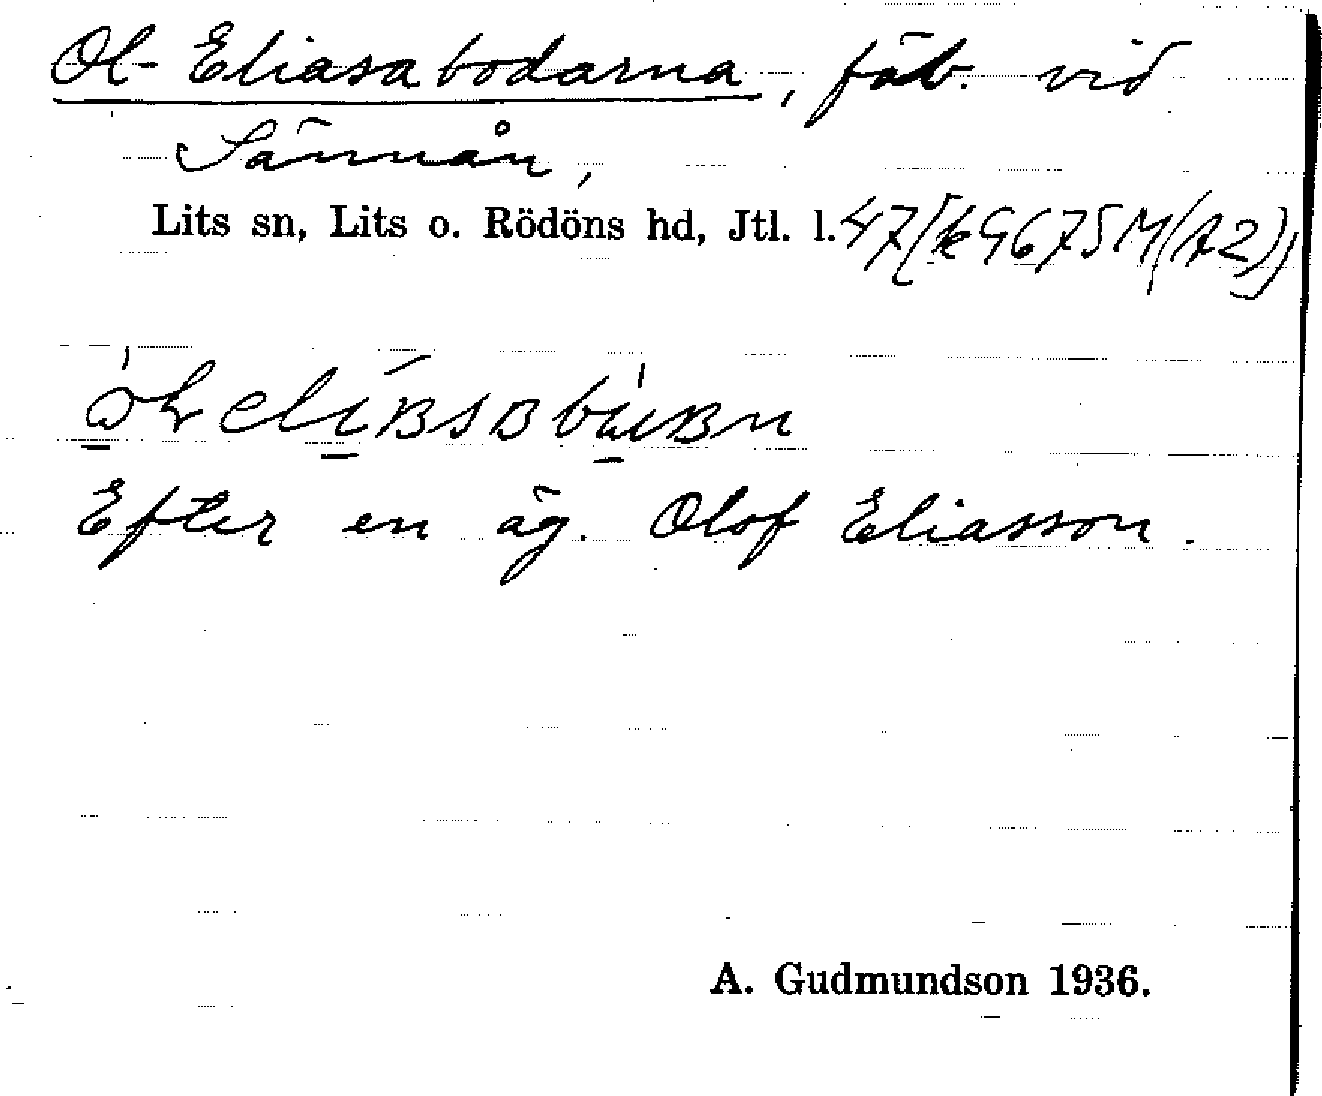 Ol-Eliasabodarna, fäb. vid
Sännån,
Lits sn, Lits o. Rödöns hd, Jtl. l. 47
Efter en äg. Olof Eliasson.
A. Gudmundson 1936.